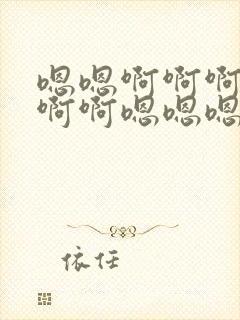 嗯嗯啊啊啊
啊啊嗯嗯嗯
依任